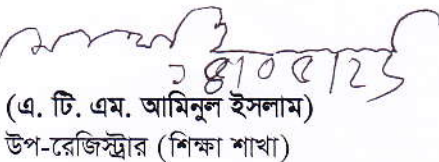 (এ. টি. এম. আমিনুল ইসলাম)
উপ-রেজিস্ট্রার (শিক্ষা শাখা)